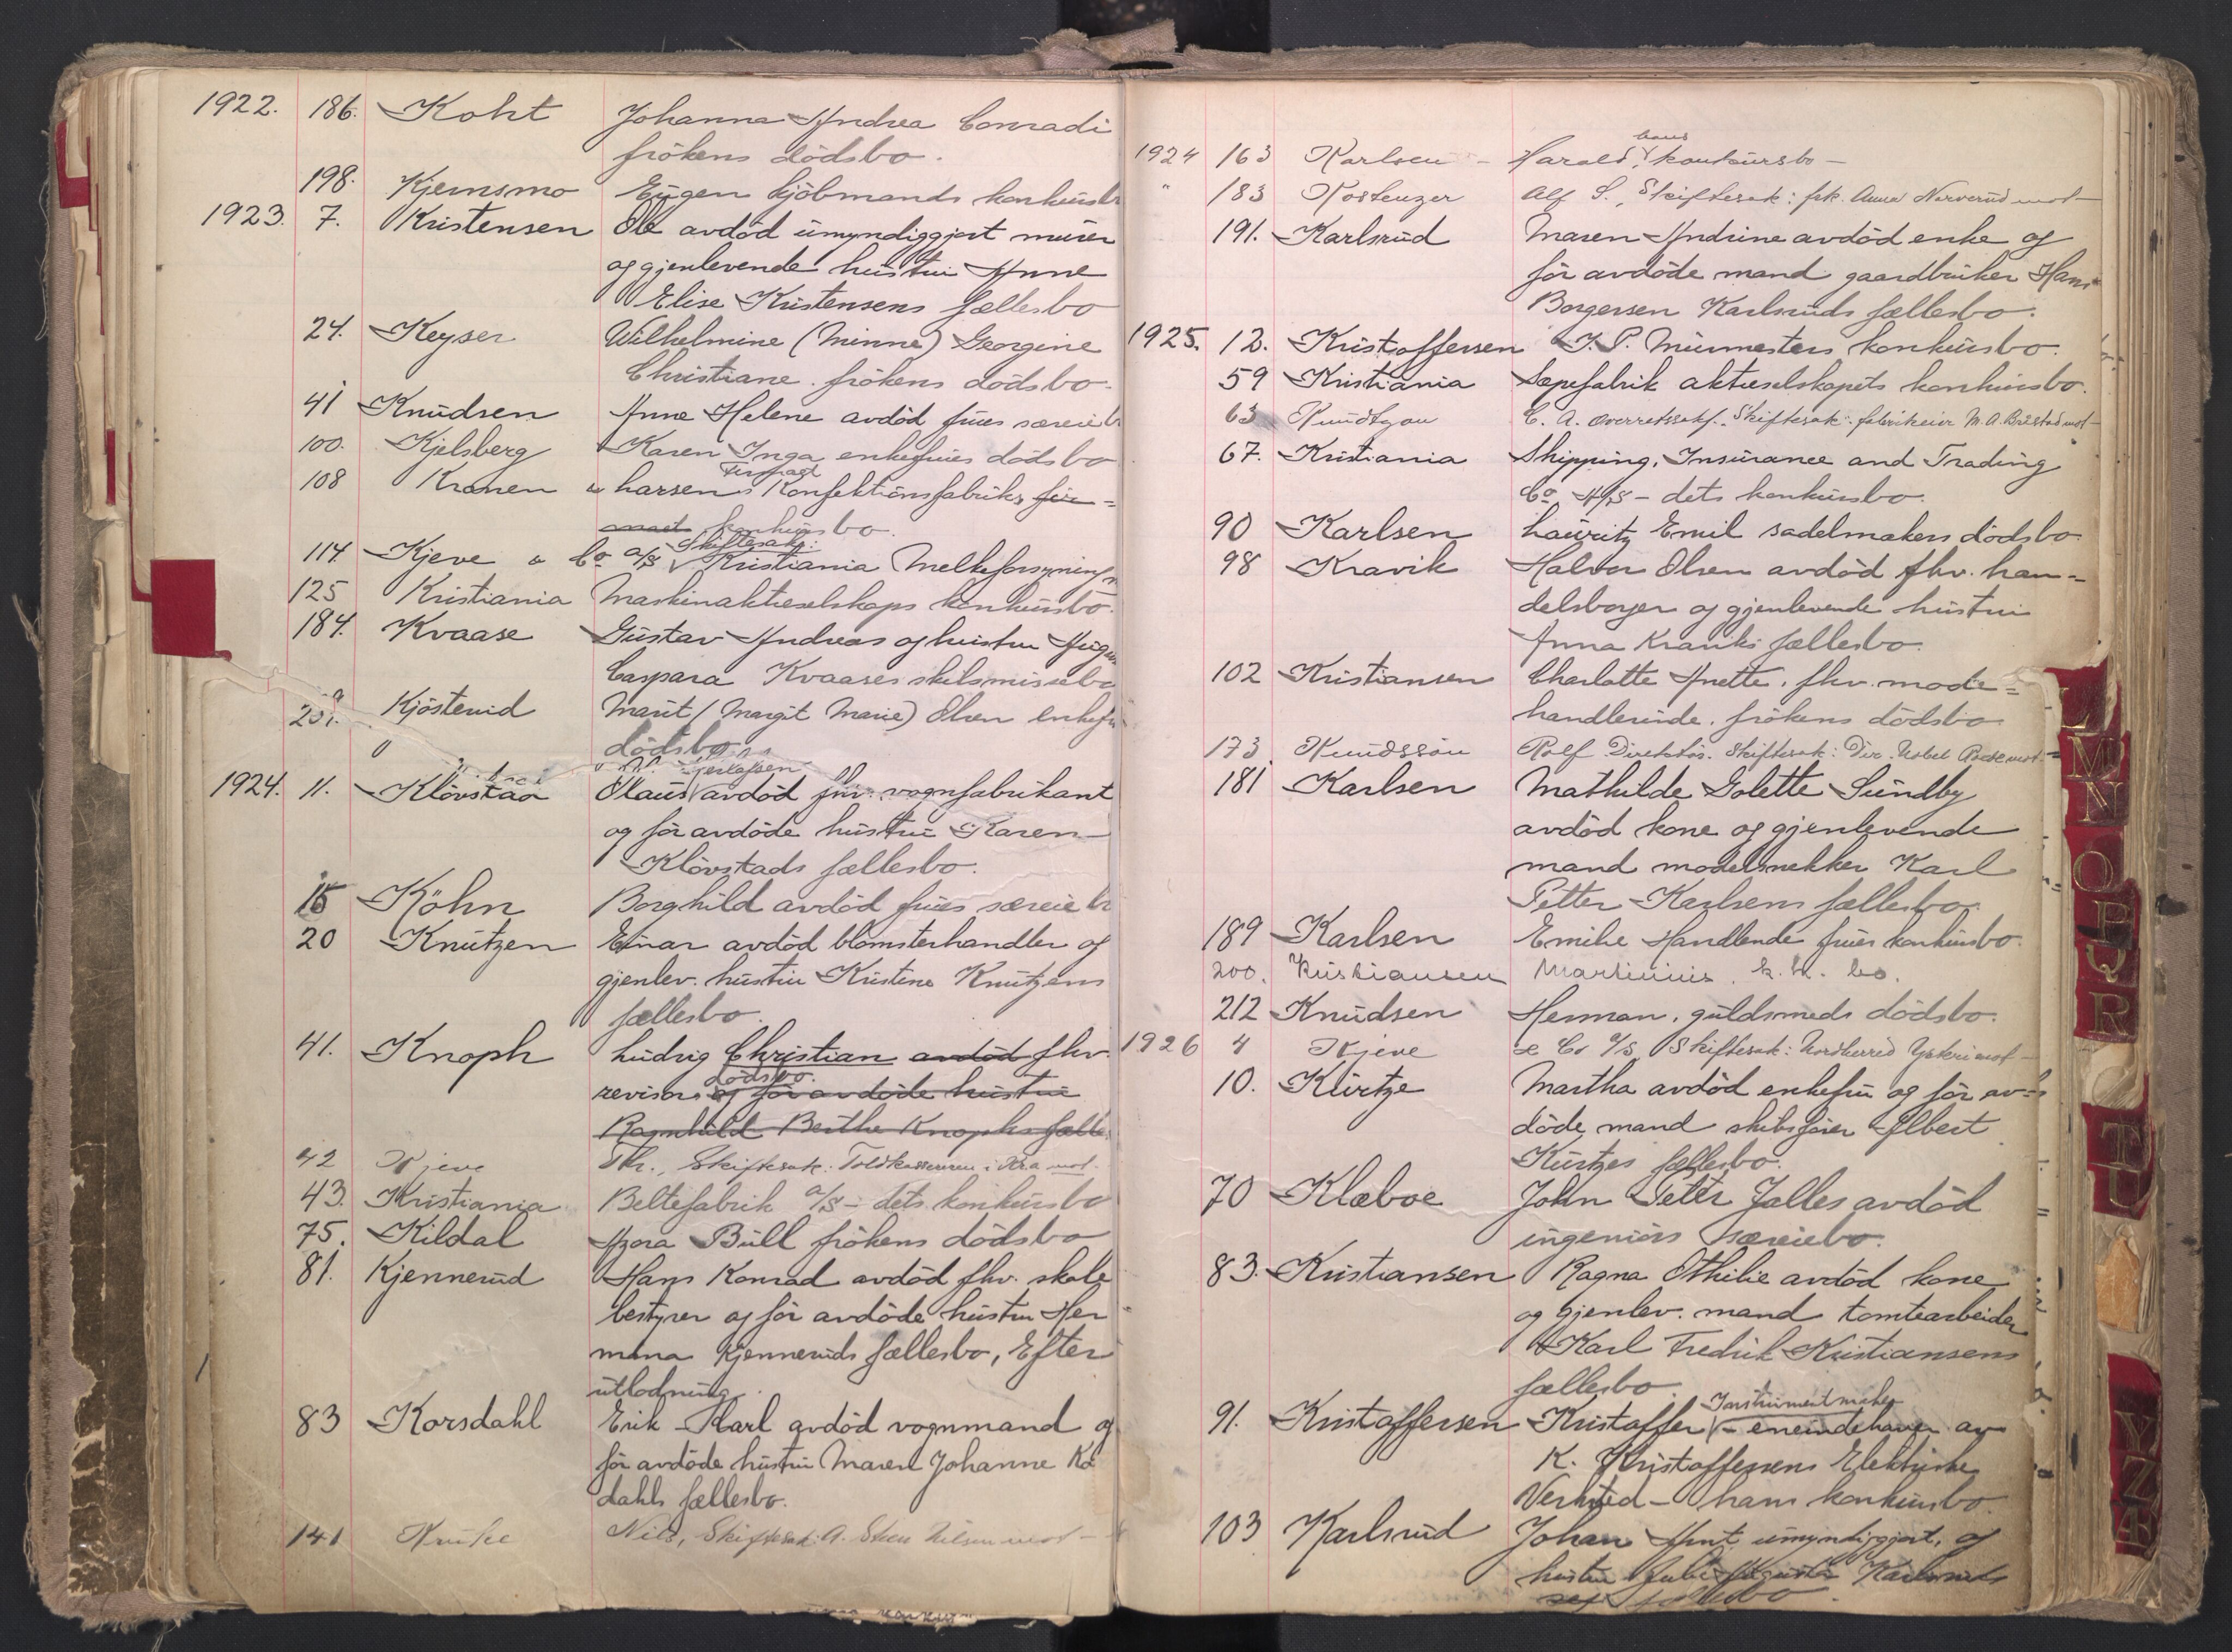 1922. 186. Koht Johanna Andrea Conradi
frökens dödsbo.
198. Kjemsmo Eugen kjöbmands konkursb
1923. 7. Kristensen Ole avdöd umyndiggjort murer
og gjenlevende hustru Anne
Elise Kristensens fællesbo
24. Keyser Wilhelmine (Minne) Georgine
Christiane. frökens dödsbo.
41 Knudsen Anne Helene avdöd frues særeieb
100. Kjelsberg Karen Inga enkefrues dödsbo
firmaet
108 Kranen & Larsens Konfektionsfabriks fir=
maet konkursbo.
Skiftesak:
114. Kjeve & Co. A/S Kristiania Melkeforsyning
125 Kristiania Maskinaktieselskaps konkursbo.
184. Kvaase Gustav Andreas og hustru
Caspara Kvaases skilsmissebo
Kjösterud Marit (Margit Marie) Olsen enkefru
dödsbo
1924. 11. Klövstad Olaus avdöd fhv. vognfabrikant
og för avdöde hustru Karen
Klövstads fællesbo.
15 Köhn Borghild avdöd frues særeieb
20 Knutzen Einar avdöd blomsterhandler og
gjenlev. hustru Kristine Knutzens
fællesbo.
41. Knoph Ludvig Christian avdöd fhv.
dödsbo.
revisors og för avdöde hustru
Ragnhild Berthe Knophs fælle
42 Kjeve Th., Skiftesak: Toldkassereren i Kra mot.
43. Kristiania Beltefabrik A/S - dets konkursbo
75. Kildal Azora Bull frökens dödsbo
81. Kjennerud Hans Konrad avdöd fhv. skole
bestyrer og för avdöde hustru Her
mina Kjenneruds fællesbo, Efter
utlodning.
83 Korsdahl Erik Karl avdöd vognmand og
för avdöde hustru Maren Johanne Ko
dahls fællesbo.
141 Kruke Nils, Skiftesak: A. Sten Nilsen mot -
hans
1924 163 Karlsen - Harald, konkursbo -
" 183 Alf S., Skiftesak: frk. Anna Narverud mot
191. Karlsrud Maren Andrine avdöd enke og
för avdöde mand gaardbruker Hans
Borgersen Karlsruds fællesbo.
1925. 12. Kristoffersen I. P. Murmesters konkursbo.
59 Kristiania Sæpefabrik aktieselskapets konkursbo.
63 Knudtzon C. A. overretssakf. Skiftesak: fabrikeier M. A. mot
67. Kristiania Shipping, Insurance and Trading
Co. A/S - dets konkursbo.
90 Karlsen Lauritz Emil sadelmakers dödsbo.
98 Kravik Halvor Olsen avdöd fhv. han=
delsborger og gjenlevende hustru
Anna Kraviks fællesbo.
102 Kristiansen Charlotte Anette. fhv. mode=
handlerinde. frökens dödsbo
173. Knudsson Rolf Direktör. Skiftesak: Dir. mot
181 Karlsen Mathilde Golette Sundby
avdöd kone og gjenlevende
mand modelsnekker Karl
Petter Karlsens fællesbo.
189 Karlsen Emilie Handlende frues konkursbo.
200. Kristiansen Martinius. k. k. bo.
212 Knudsen Herman. guldsmeds dödsbo.
1926 4 Kjeve & Co A/S, Skiftesak: Nordherred Ysteri mot -
10. Kürtze Martha avdöd enkefru og för av=
döde mand skibsförer Albert
Kürtzes fællesbo.
70 Klæboe John Peter Jalles avdöd
ingeniörs særeiebo.
83. Kristiansen Ragna Othilie avdöd kone
og gjenlev. mand tomtearbeider
Karl Fredrik Kristiansens
fællesbo.
Instrumentmaker
91. Kristoffersen Kristoffer - eneindehaver av
K. Kristoffersens Elektriske
Verksted - hans konkursbo.
103 Karlsrud Johan umyndiggjort, og
hustru Karlsruds
fællesbo.
L
M
N
O
P
Q
R
T
U
Y
Z
Æ